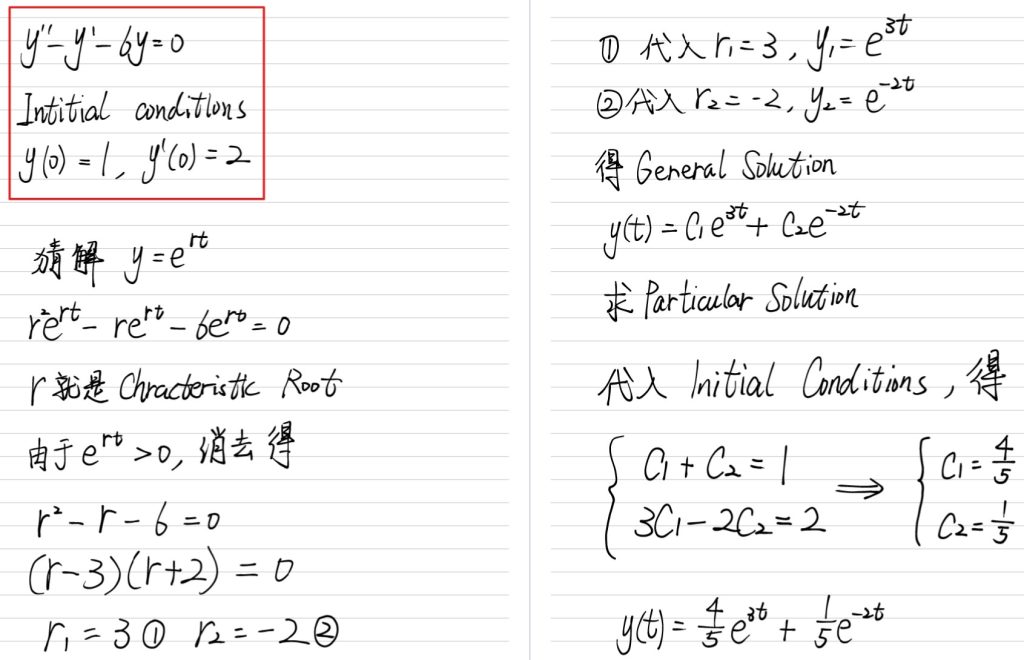 y'' - y' - 6y = 0
Intitial conditions
y(0) = 1, y'(0) = 2
猜解 y = e^{rt}
r²e^{rt} - re^{rt} - 6e^{rt} = 0
r 就是 Chracteristic Root
由于 e^{rt} > 0, 消去得
r² - r - 6 = 0
(r-3)(r+2) = 0
r₁ = 3 ① r₂ = -2 ②
① 代入 r₁ = 3, y₁ = e^{3t}
② 代入 r₂ = -2, y₂ = e^{-2t}
得 General Solution
y(t) = C₁e^{3t} + C₂e^{-2t}
求 Particular Solution
代入 Initial Conditions, 得
{ C₁ + C₂ = 1 ⟹ { C₁ = 4/5
3C₁ - 2C₂ = 2 C₂ = 1/5
y(t) = 4/5 e^{3t} + 1/5 e^{-2t}